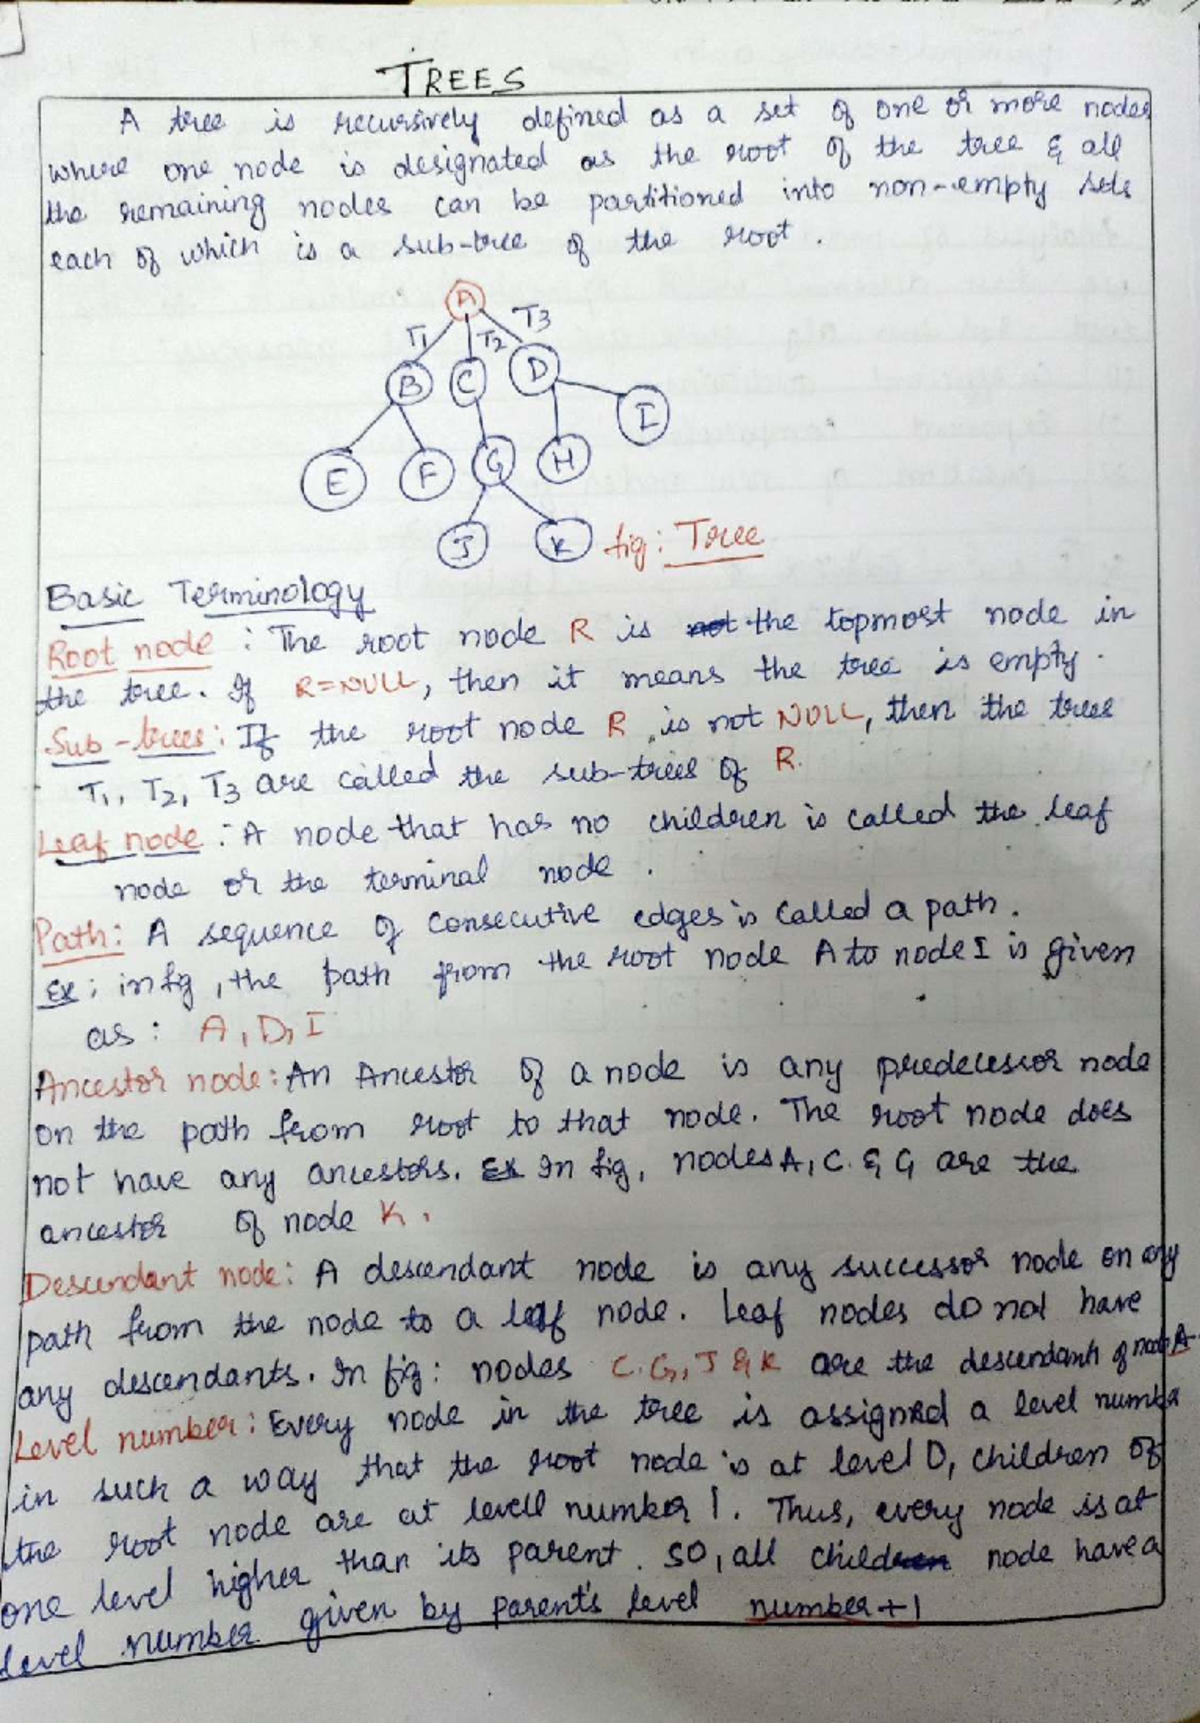 TREES
A tree is recursively defined as a set of one or more nodes
where one node is designated as the root of the tree & all
the remaining nodes can be partitioned into non-empty sets
each of which is a sub-tree of the root.
A
T1 T2 T3
B C D
I
E F G H
J K fig: Tree
Basic Terminology
Root node: The root node R is not the topmost node in
the tree. If R=NULL, then it means the tree is empty.
Sub-trees: If the root node R is not NULL, then the trees
T1, T2, T3 are called the sub-trees of R.
Leaf node: A node that has no children is called the leaf
node or the terminal node.
Path: A sequence of consecutive edges is called a path.
Ex: in fig, the path from the root node A to node I is given
as: A, D, I
Ancestor node: An Ancestor of a node is any predecessor node
on the path from root to that node. The root node does
not have any ancestors. Ex In fig, nodes A, C & G are the
ancestor of node K.
Descendant node: A descendant node is any successor node on any
path from the node to a leaf node. Leaf nodes do not have
any descendants. In fig: nodes C, G, J & K are the descendants of node A.
Level number: Every node in the tree is assigned a level number
in such a way that the root node is at level 0, children of
the root node are at level number 1. Thus, every node is at
one level higher than its parent. So, all child node have a
level number given by parent's level number+1